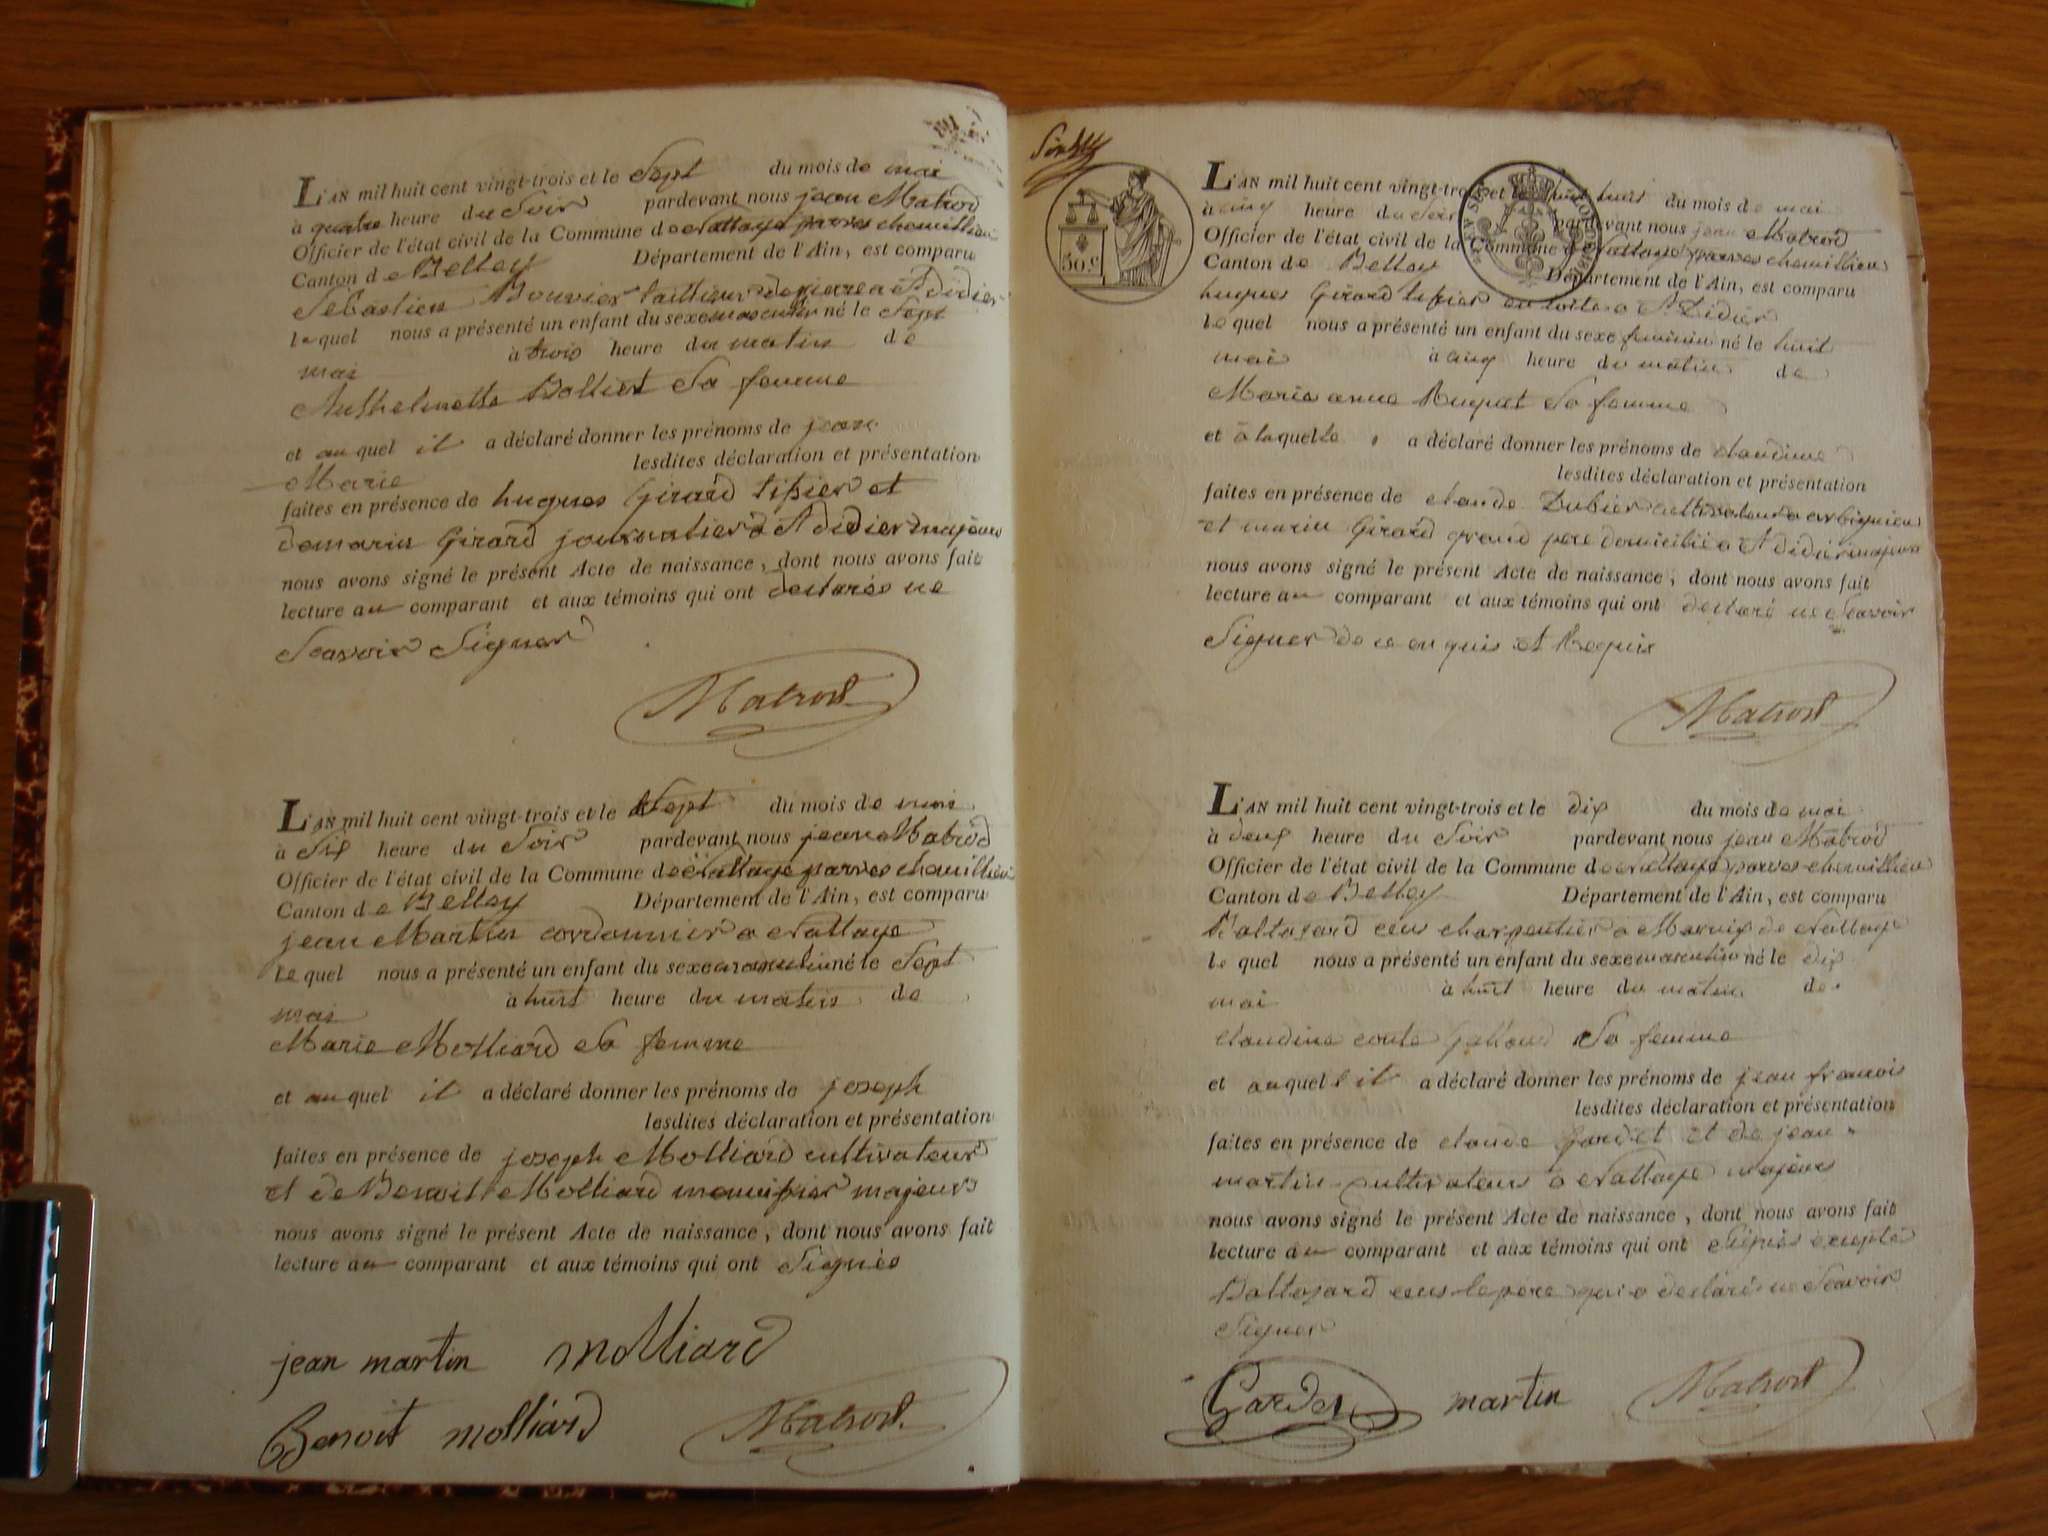 L'AN mil huit cent vingt-trois et le Sept du mois de mai
à quatre heure du Soir pardevant nous jean Matrod
Officier de l'état civil de la Commune de Nattage parves chemillieu
Canton de Belley Département de l'Ain, est comparu
Sébastien Bouvier tailleur de pierre a St didier
lequel nous a présenté un enfant du sexe masculin né le Sept
mai à trois heure du matin de
Anthelmette Sa femme
et auquel il a déclaré donner les prénoms de jean
Marie lesdites déclaration et présentation
faites en présence de hugues Girard tissier et
de marin Girard journalier a St didier majeurs
nous avons signé le présent Acte de naissance, dont nous avons fait
lecture au comparant et aux témoins qui ont declarés ne
Scavoir Signer
Matrod
L'AN mil huit cent vingt-trois et le Sept du mois de mai
à Six heure du Soir pardevant nous jean Matrod
Officier de l'état civil de la Commune de Nattage parves chemillieu
Canton de Belley Département de l'Ain, est comparu
jean Martin cordonnier a Nattage
lequel nous a présenté un enfant du sexe masculin né le Sept
mai à huit heure du matin de
Marie Molliard Sa femme
et auquel il a déclaré donner les prénoms de joseph
lesdites déclaration et présentation
faites en présence de joseph Molliard cultivateur
et de Benoit Molliard majeurs
nous avons signé le présent Acte de naissance, dont nous avons fait
lecture au comparant et aux témoins qui ont Signés
jean martin molliard
Benoit molliard Matrod
50 c.
L'AN mil huit cent vingt-trois et le huit du mois de mai
à cinq heure du Soir pardevant nous jean Matrod
Officier de l'état civil de la Commune de Nattage parves chemillieu
Canton de Belley Département de l'Ain, est comparu
hugues Girard tissier en toile a St Didier
lequel nous a présenté un enfant du sexe feminin né le huit
mai à cinq heure du matin de
Marie anne Huguet Sa femme
et a laquelle a déclaré donner les prénoms de claudine
lesdites déclaration et présentation
faites en présence de claude Dubier cultivateur a arbignieu
et marin Girard grand pere domicilié a St didier majeurs
nous avons signé le présent Acte de naissance, dont nous avons fait
lecture au comparant et aux témoins qui ont declaré ne Scavoir
Signer de ce enquis et Requis
Matrod
L'AN mil huit cent vingt-trois et le dix du mois de mai
à deux heure du Soir pardevant nous jean Matrod
Officier de l'état civil de la Commune de Nattage parves chemillieu
Canton de Belley Département de l'Ain, est comparu
Baltazard charpentier a de Nattage
lequel nous a présenté un enfant du sexe masculin né le dix
mai à huit heure du matin de
claudine Sa femme
et auquel il a déclaré donner les prénoms de jean francois
lesdites déclaration et présentation
faites en présence de claude Gardet et de jean
martin cultivateurs a Nattage majeurs
nous avons signé le présent Acte de naissance, dont nous avons fait
lecture au comparant et aux témoins qui ont Signés excepté
Baltazard le pere qui a declaré ne Scavoir
Signer
Gardet martin Matrod